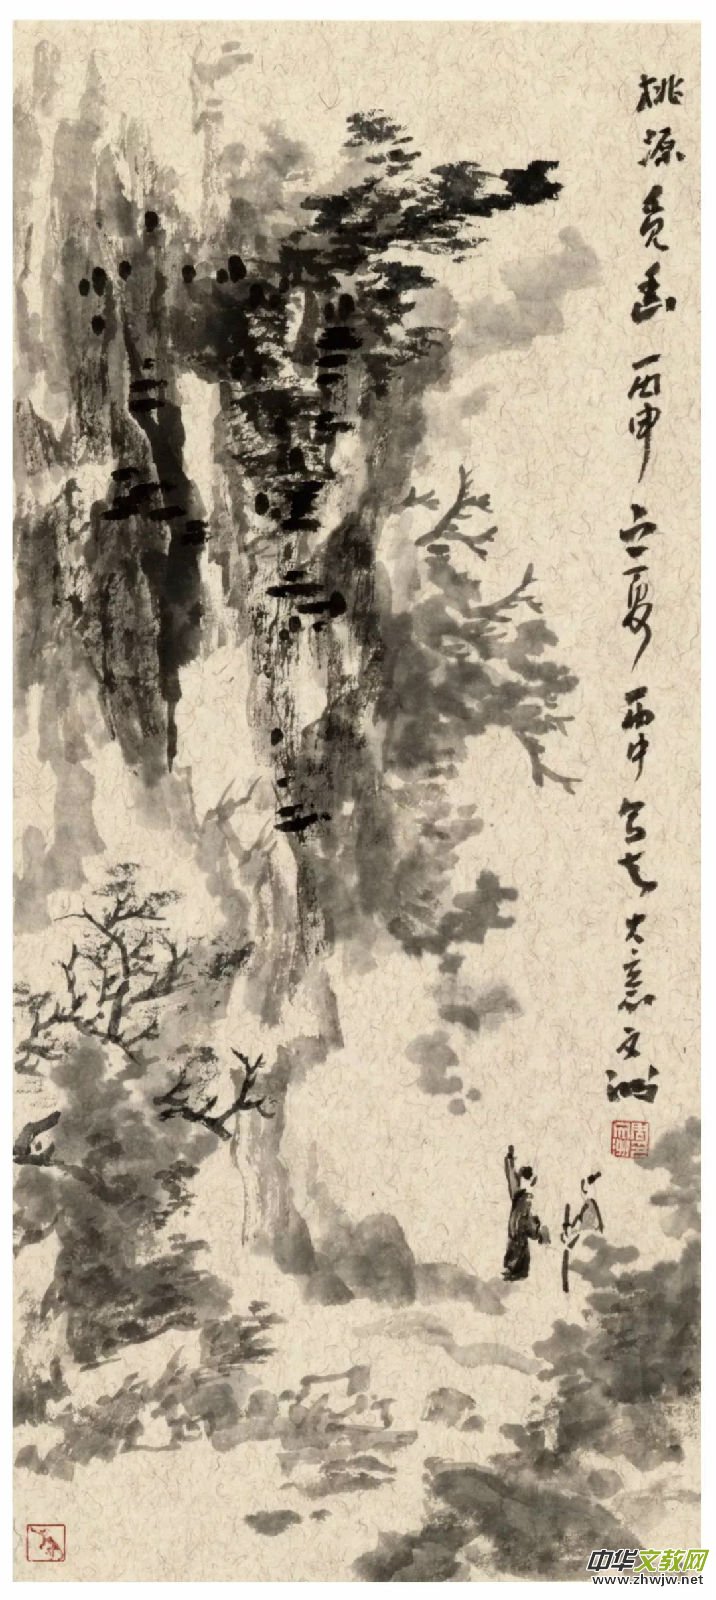 桃源觅幽 丙申立夏 丙中写其大意 文洲
中华文教网
www.zhwjw.net